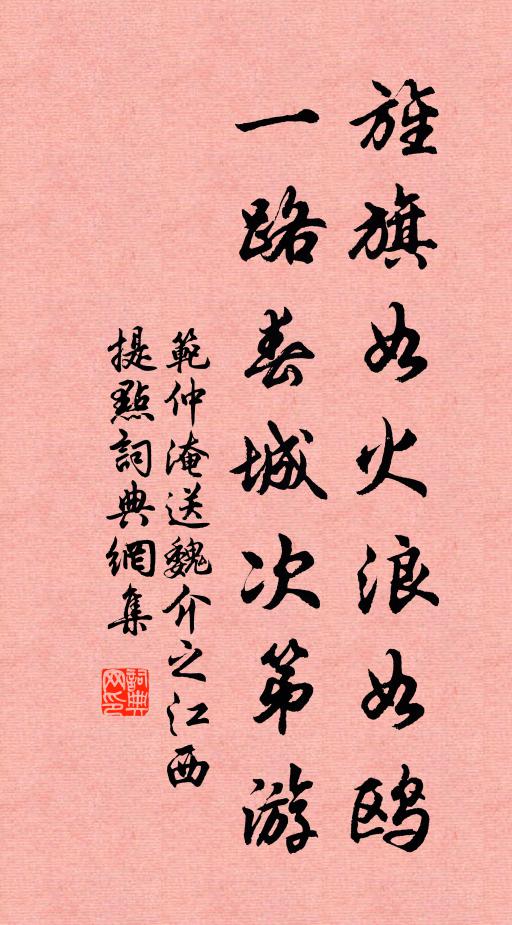 旌旗如火浪如鸥
一路春城次第游
範仲淹送魏介之江西
提點詞典網集
詞典网印